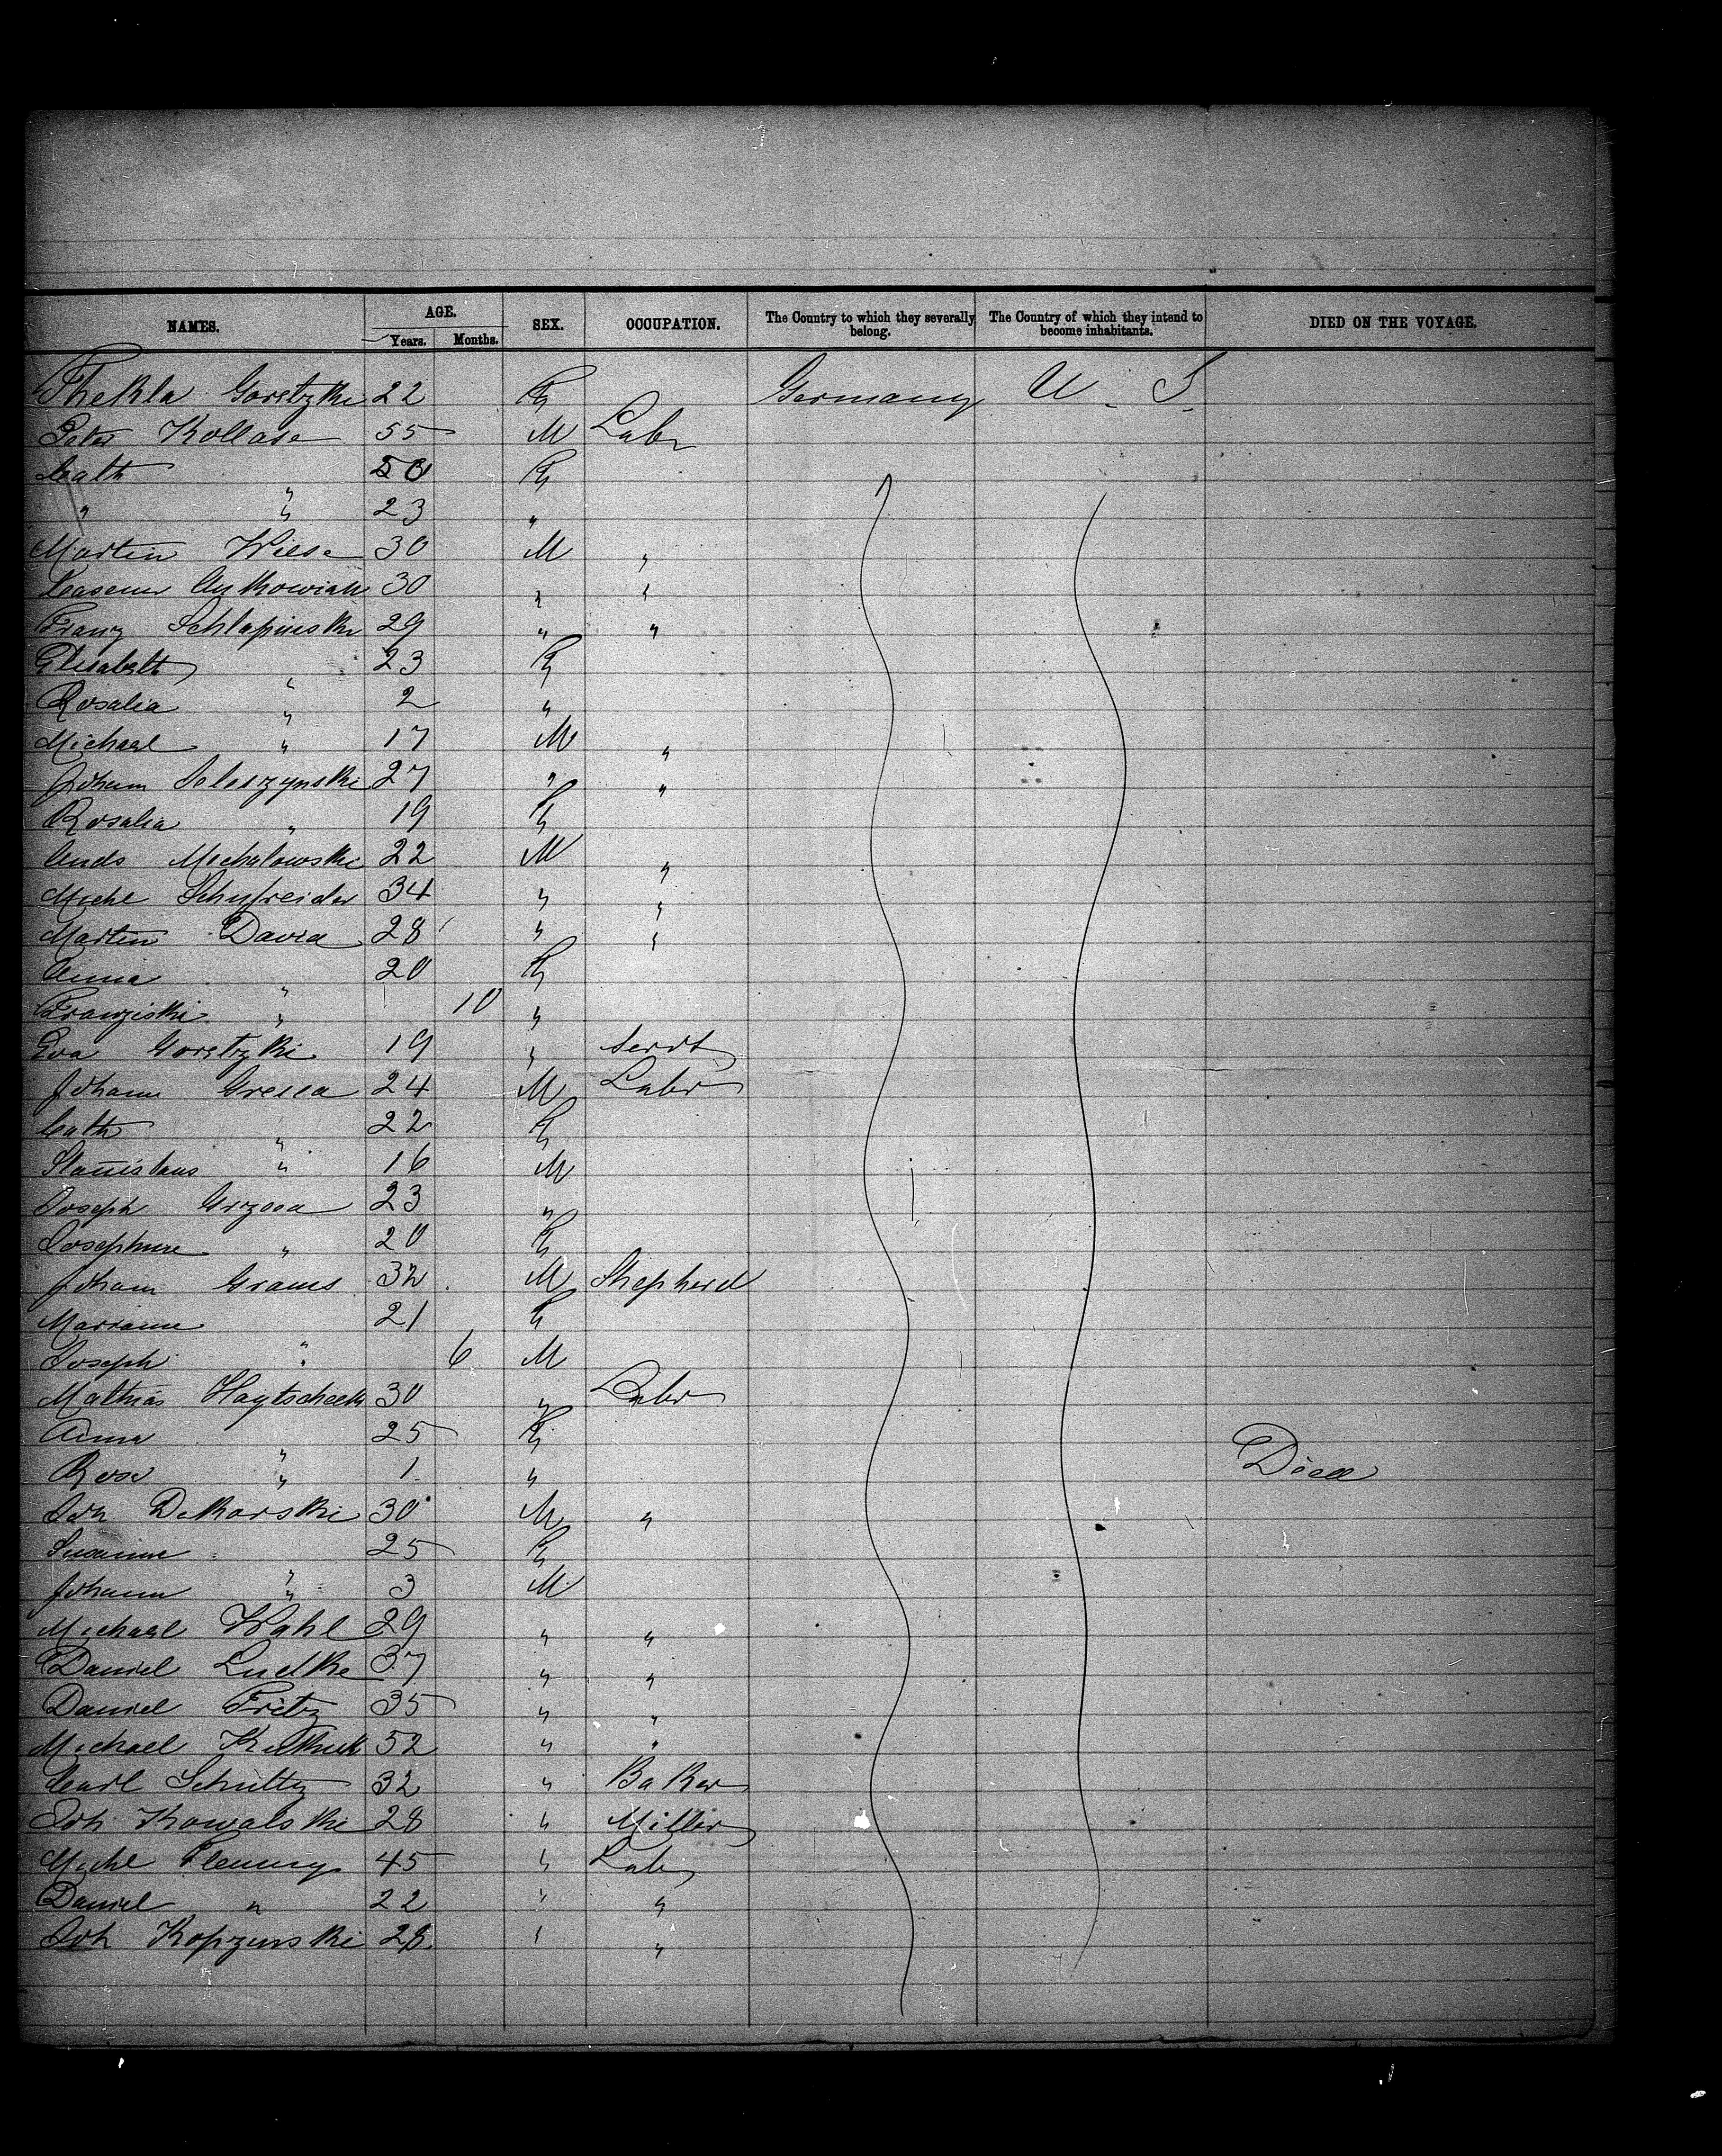 NAMES. AGE. SEX. OCCUPATION. The Country to which they severally belong. The Country of which they intend to become inhabitants. DIED ON THE VOYAGE.
Years. Months.
Thekla Goretzki 22 F Germany U. S.
Peter Kollase 55 M Labr
Cath " 50 F
" " 23 "
Martin Wiese 30 M "
Casemir Antkowiak 30 " "
Franz Schlapinski 29 " "
Elisabeth " 23 F
Rosalia " 2 "
Michael " 17 M "
Johann 27 " "
Rosalia " 19 F
Andr Michalowski 22 M "
Michl 34 " "
Martin David 28 " "
Anna " 20 F
Franziski " 10 "
Eva Goretzki 19 " Servt
Johann 24 M Labr
Cath " 22 F
Stanislaus " 16 M
Joseph 23 "
Josephine " 20 F
Johann Grams 32 M Shepherd
Marianne 21 F
Joseph " 6 M
Mathias Haytscheck 30 " Labr
Anna " 25 F
Rosa " 1 " Died
Joh Dekarski 30 M "
Susanne " 25 F
Johann " 3 M
Michael Wahl 29 " "
Daniel Ludke 37 " "
Daniel Fritz 35 " "
Michael 52 " "
Carl Schultz 32 " Baker
Joh Kowalski 28 " Miller
Michl Flemming 45 " Labr
Daniel " 22 " "
Joh Kopzinski 28 " "